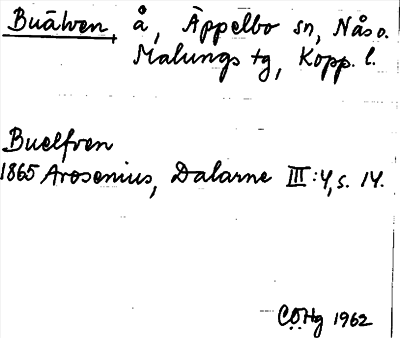 Buälven, å, Äppelbo sn, Nås o.
Malungs tg, Kopp. l.
Buelfven
1865 Arosenius, Dalarne III:4, s. 14.
CÖHg 1962